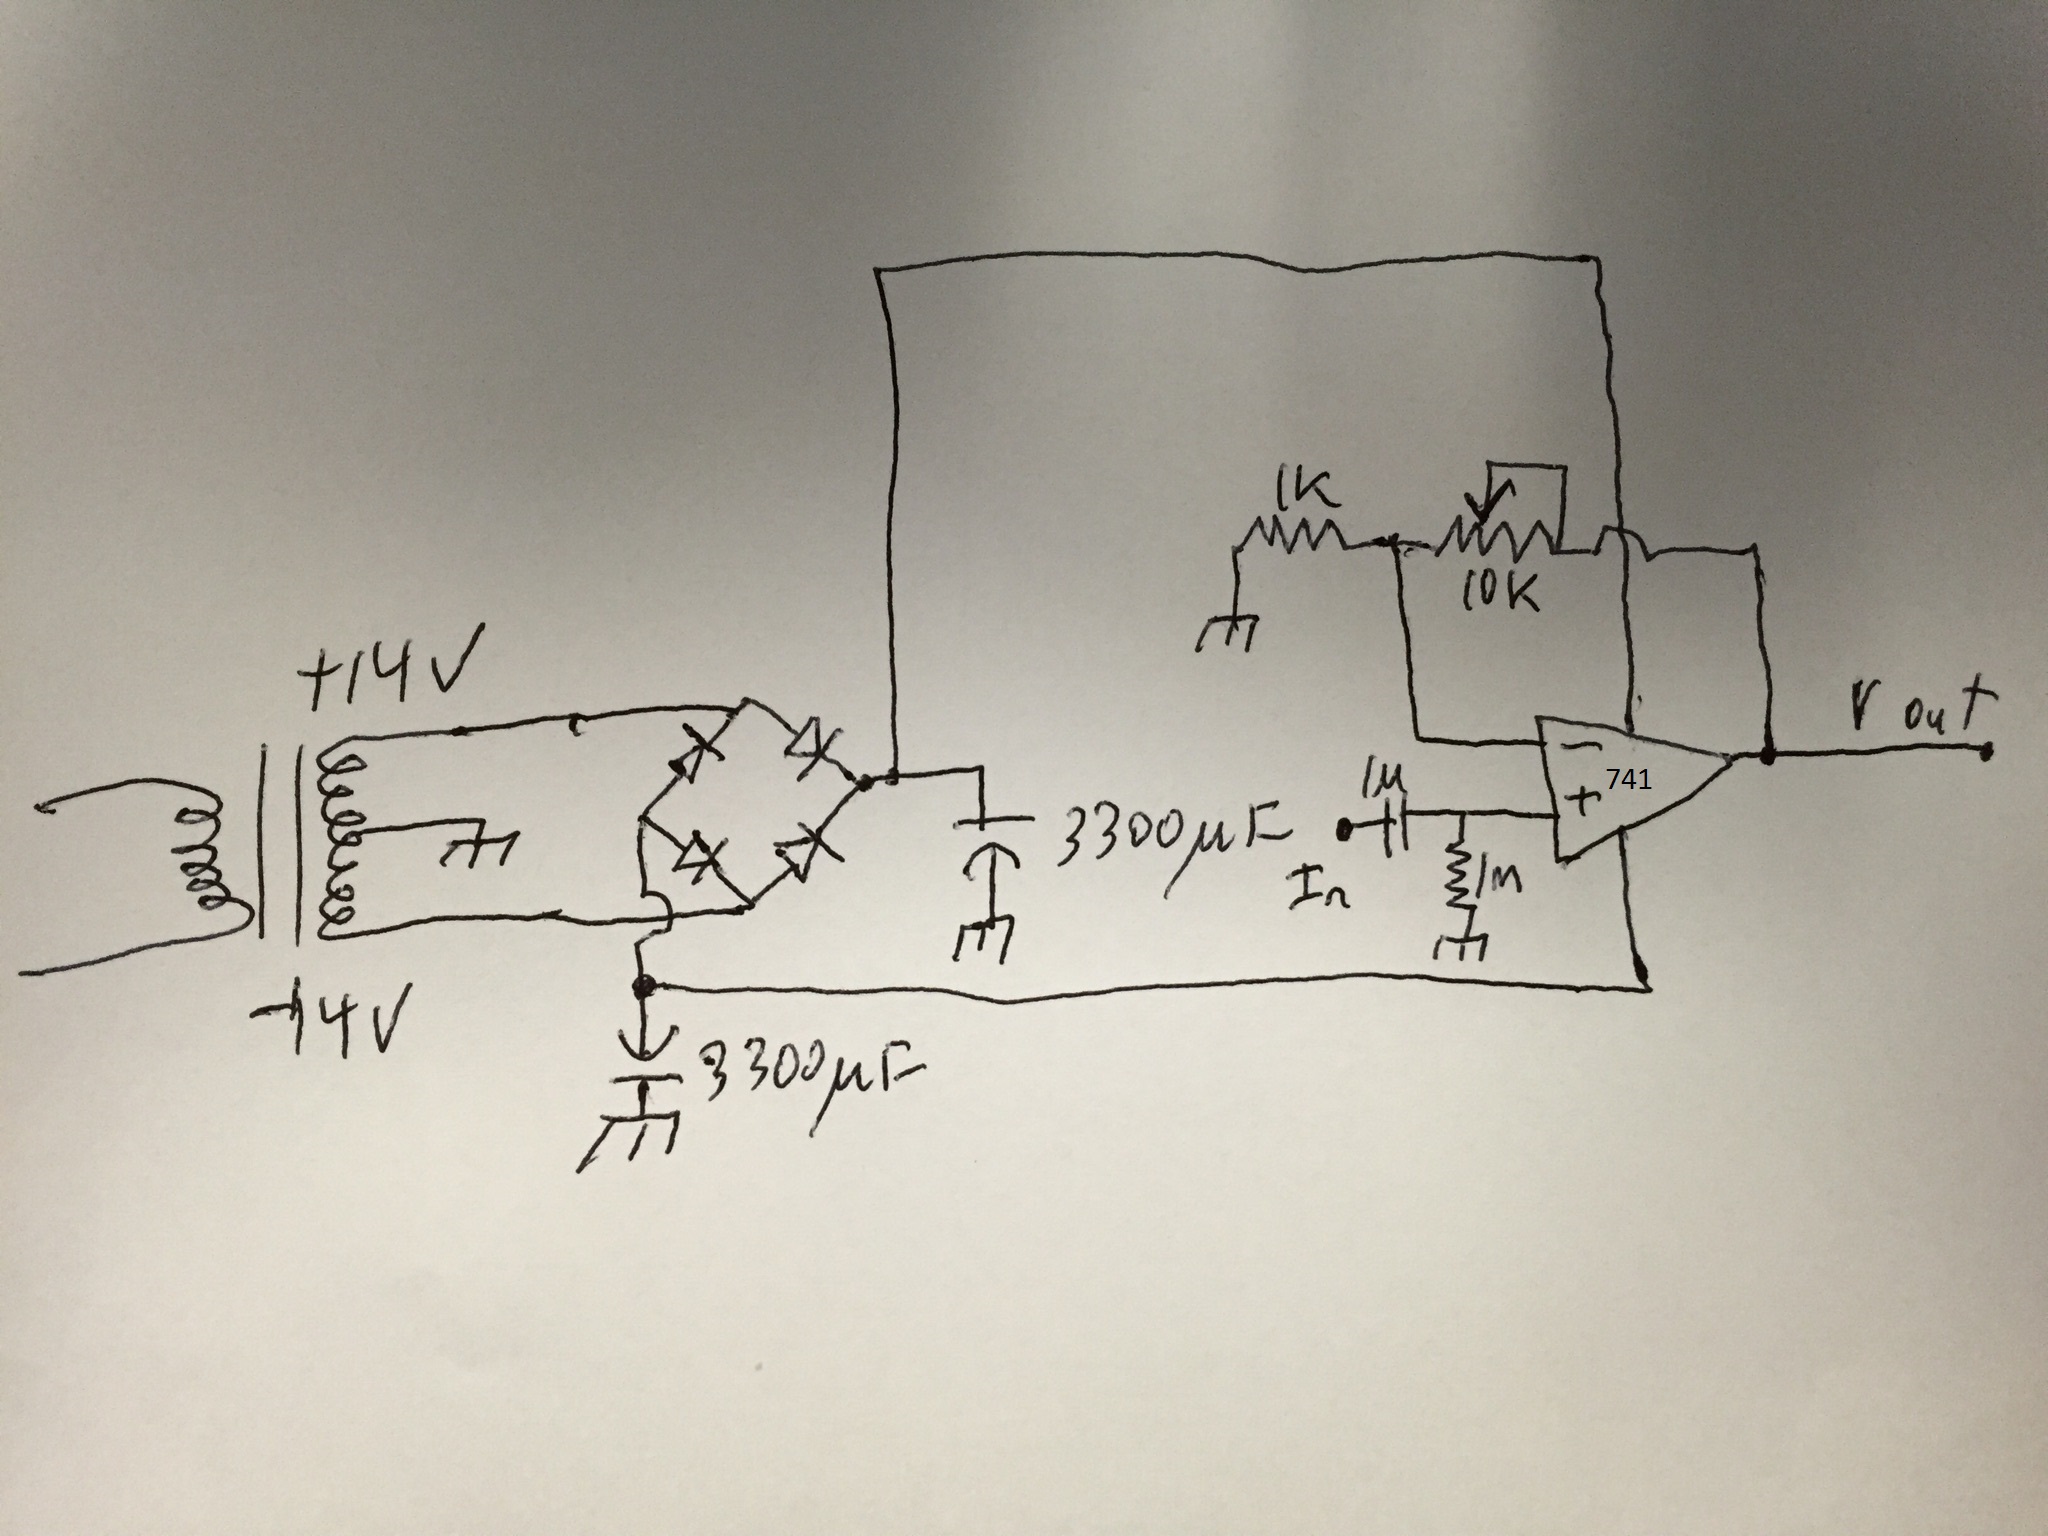 1K
10K
+14V
V out
-
741
+
1µ
3300µF
In
1M
-14V
3300µF